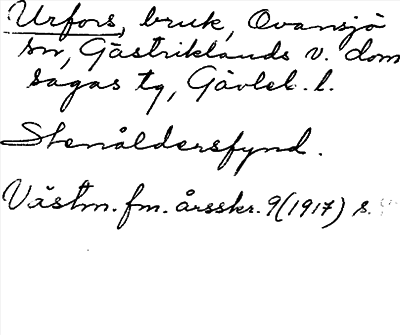 Urfors, bruk, Ovansjö
sn, Gästriklands v. dom
sagas tg, Gävleb. l.
Stenåldersfynd.
Västm. fm. årsskr. 9(1917) s.